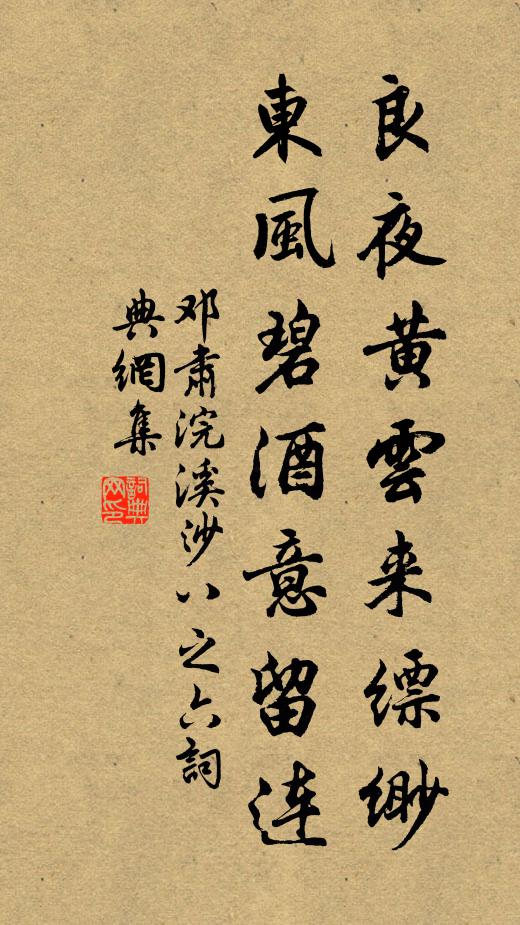 良夜黄雲来縹緲
東風碧酒意留連
邓肅浣溪沙八之六詞
典網集
詞典網印